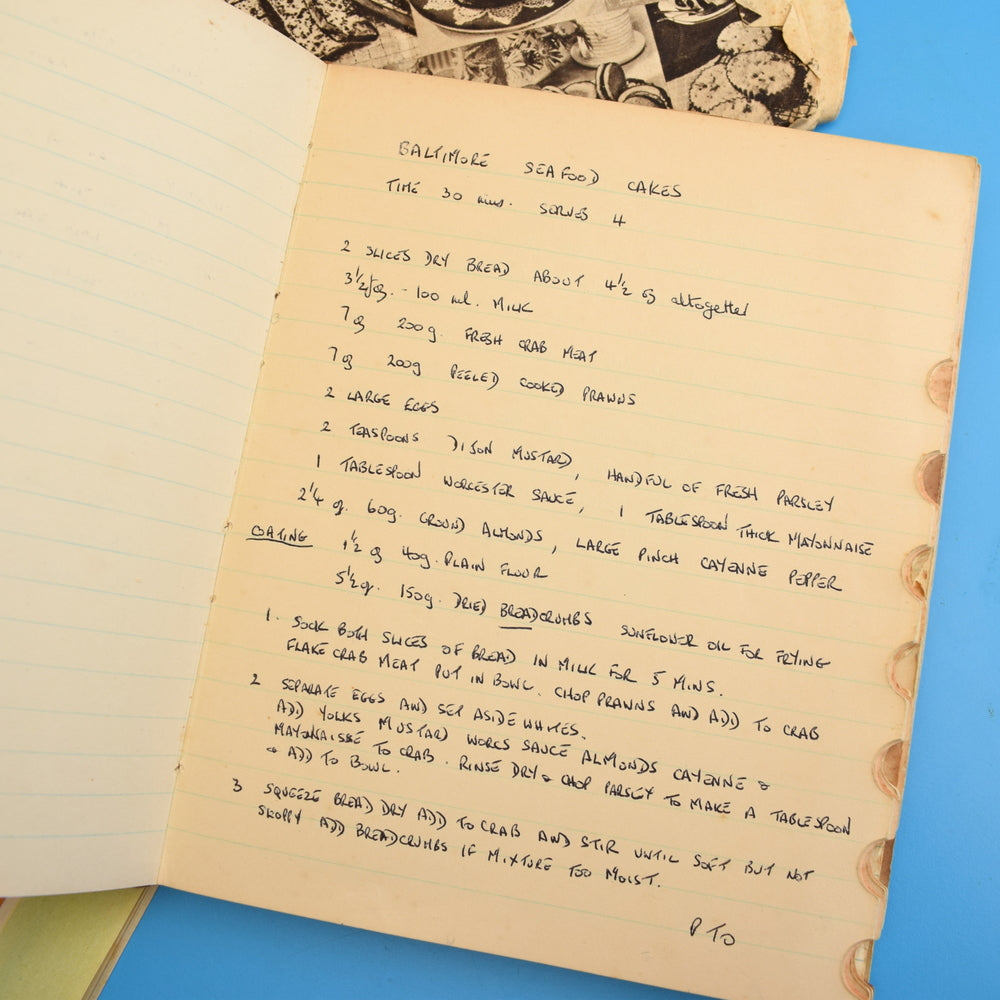 BALTIMORE SEAFOOD CAKES
TIME 30 mins. SERVES 4
2 SLICES DRY BREAD ABOUT 4½ oz altogether
3½ foz. - 100 ml. MILK
7 oz 200g. FRESH CRAB MEAT
7 oz 200g PEELED COOKED PRAWNS
2 LARGE EGGS
2 TEASPOONS DIJON MUSTARD, HANDFUL OF FRESH PARSLEY
1 TABLESPOON WORCESTER SAUCE, 1 TABLESPOON THICK MAYONNAISE
2¼ oz. 60g. GROUND ALMONDS, LARGE PINCH CAYENNE PEPPER
COATING 1½ oz 40g. PLAIN FLOUR
5½ oz. 150g. DRIED BREADCRUMBS SUNFLOWER OIL FOR FRYING
1. SOCK BOTH SLICES OF BREAD IN MILK FOR 5 MINS.
FLAKE CRAB MEAT PUT IN BOWL. CHOP PRAWNS AND ADD TO CRAB
2 SEPARATE EGGS AND SET ASIDE WHITES.
ADD YOLKS MUSTARD WORCS SAUCE ALMONDS CAYENNE &
MAYONAISSE TO CRAB. RINSE DRY & CHOP PARSLEY TO MAKE A TABLESPOON
& ADD TO BOWL.
3 SQUEEZE BREAD DRY ADD TO CRAB AND STIR UNTIL SOFT BUT NOT
SLOPPY ADD BREADCRUMBS IF MIXTURE TOO MOIST.
P TO